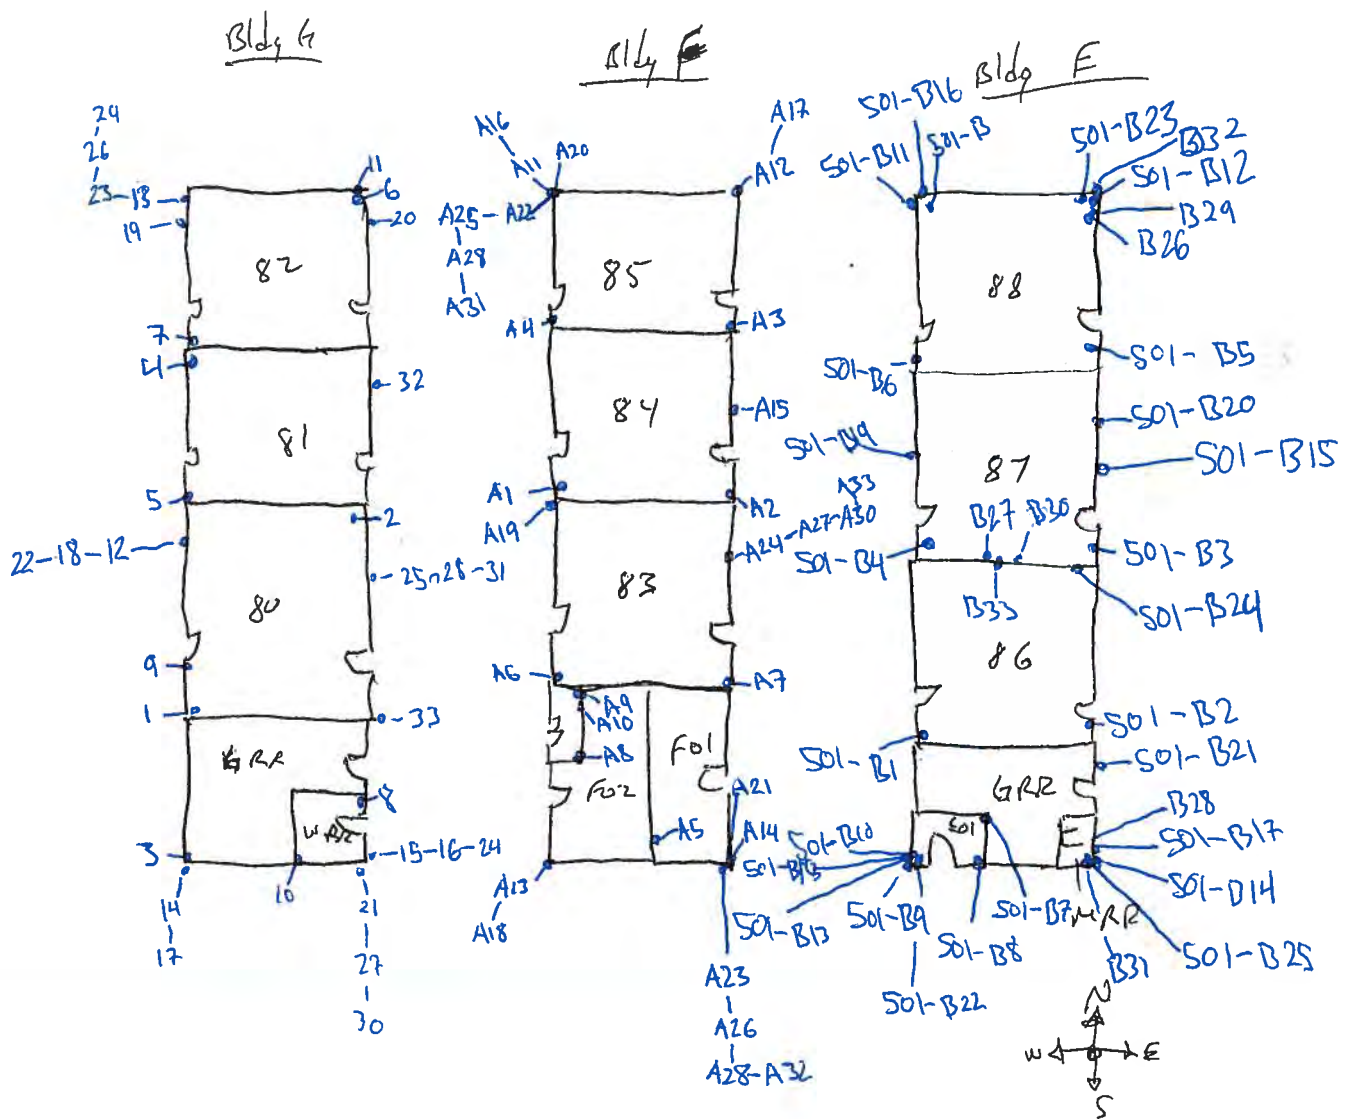 Bldg G
24
26
23-13
19
11
6
20
82
7
4
32
81
5
2
22-18-12
25-28-31
80
9
1
33
GRR
8
WRR
3
15-16-24
10
14
17
21
27
30
Bldg F
A16
A11
A20
A17
A12
A25-A22
A28
A31
85
A4
A3
84
A15
A1
A2
A19
A33
A24-A27-A30
83
A6
A7
A9
A10
A8
F01
F02
A21
A5
A14
A13
A18
A23
A26
A28-A32
Bldg E
501-B16
501-B
501-B11
501-B23
B32
501-B12
B29
B26
88
501-B6
501-B5
501-B20
501-B19
87
501-B15
B27
B30
501-B4
501-B3
B33
501-B24
86
501-B2
501-B1
501-B21
GRR
501
E
B28
501-B10
501-B17
501-B14
501-B13
501-B9
501-B7
MRR
501-B8
501-B25
B31
501-B22
N
W
E
S